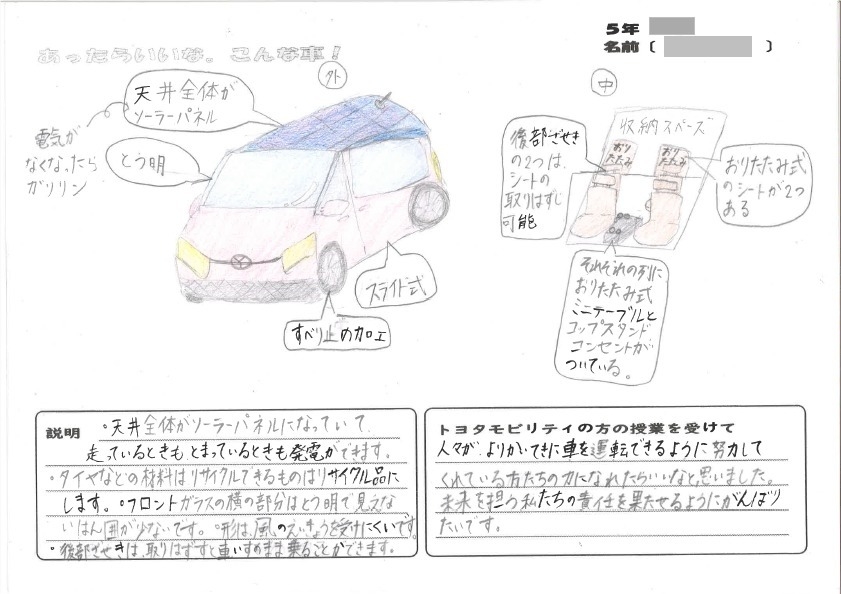 あったらいいな。こんな車！
5年
名前（　）
外
天井全体が
ソーラーパネル
電気が
なくなったら
ガソリン
とう明
スライド式
すべり止め加工
中
収納スペース
おり
たたみ
おり
たたみ
後部ざせき
の2つは、
シートの
取りはずし
可能
おりたたみ式
のシートが2つ
ある
それぞれの列に
おりたたみ式
ミニテーブルと
コップスタンド
コンセントが
ついている。
説明
・天井全体がソーラーパネルになっていて
走っているときもとまっているときも発電ができます。
・タイヤなどの材料はリサイクルできるものはリサイクル品に
します。・フロントガラスの横の部分はとう明で見えな
いはん囲が少ないです。・形は、風のえいきょうを受けにくいです
・後部ざせきは、取りはずすと車いすのまま乗ることができます。
トヨタモビリティの方の授業を受けて
人々が、よりかいてきに車を運転できるように努力して
くれている方たちの力になれたらいいなと思いました。
未来を担う私たちの責任を果たせるようにがんばり
たいです。